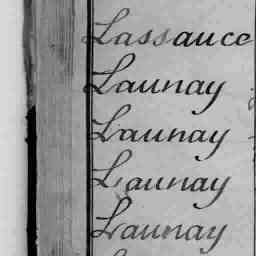 Lassauce
Launay
Launay
Launay
Launay